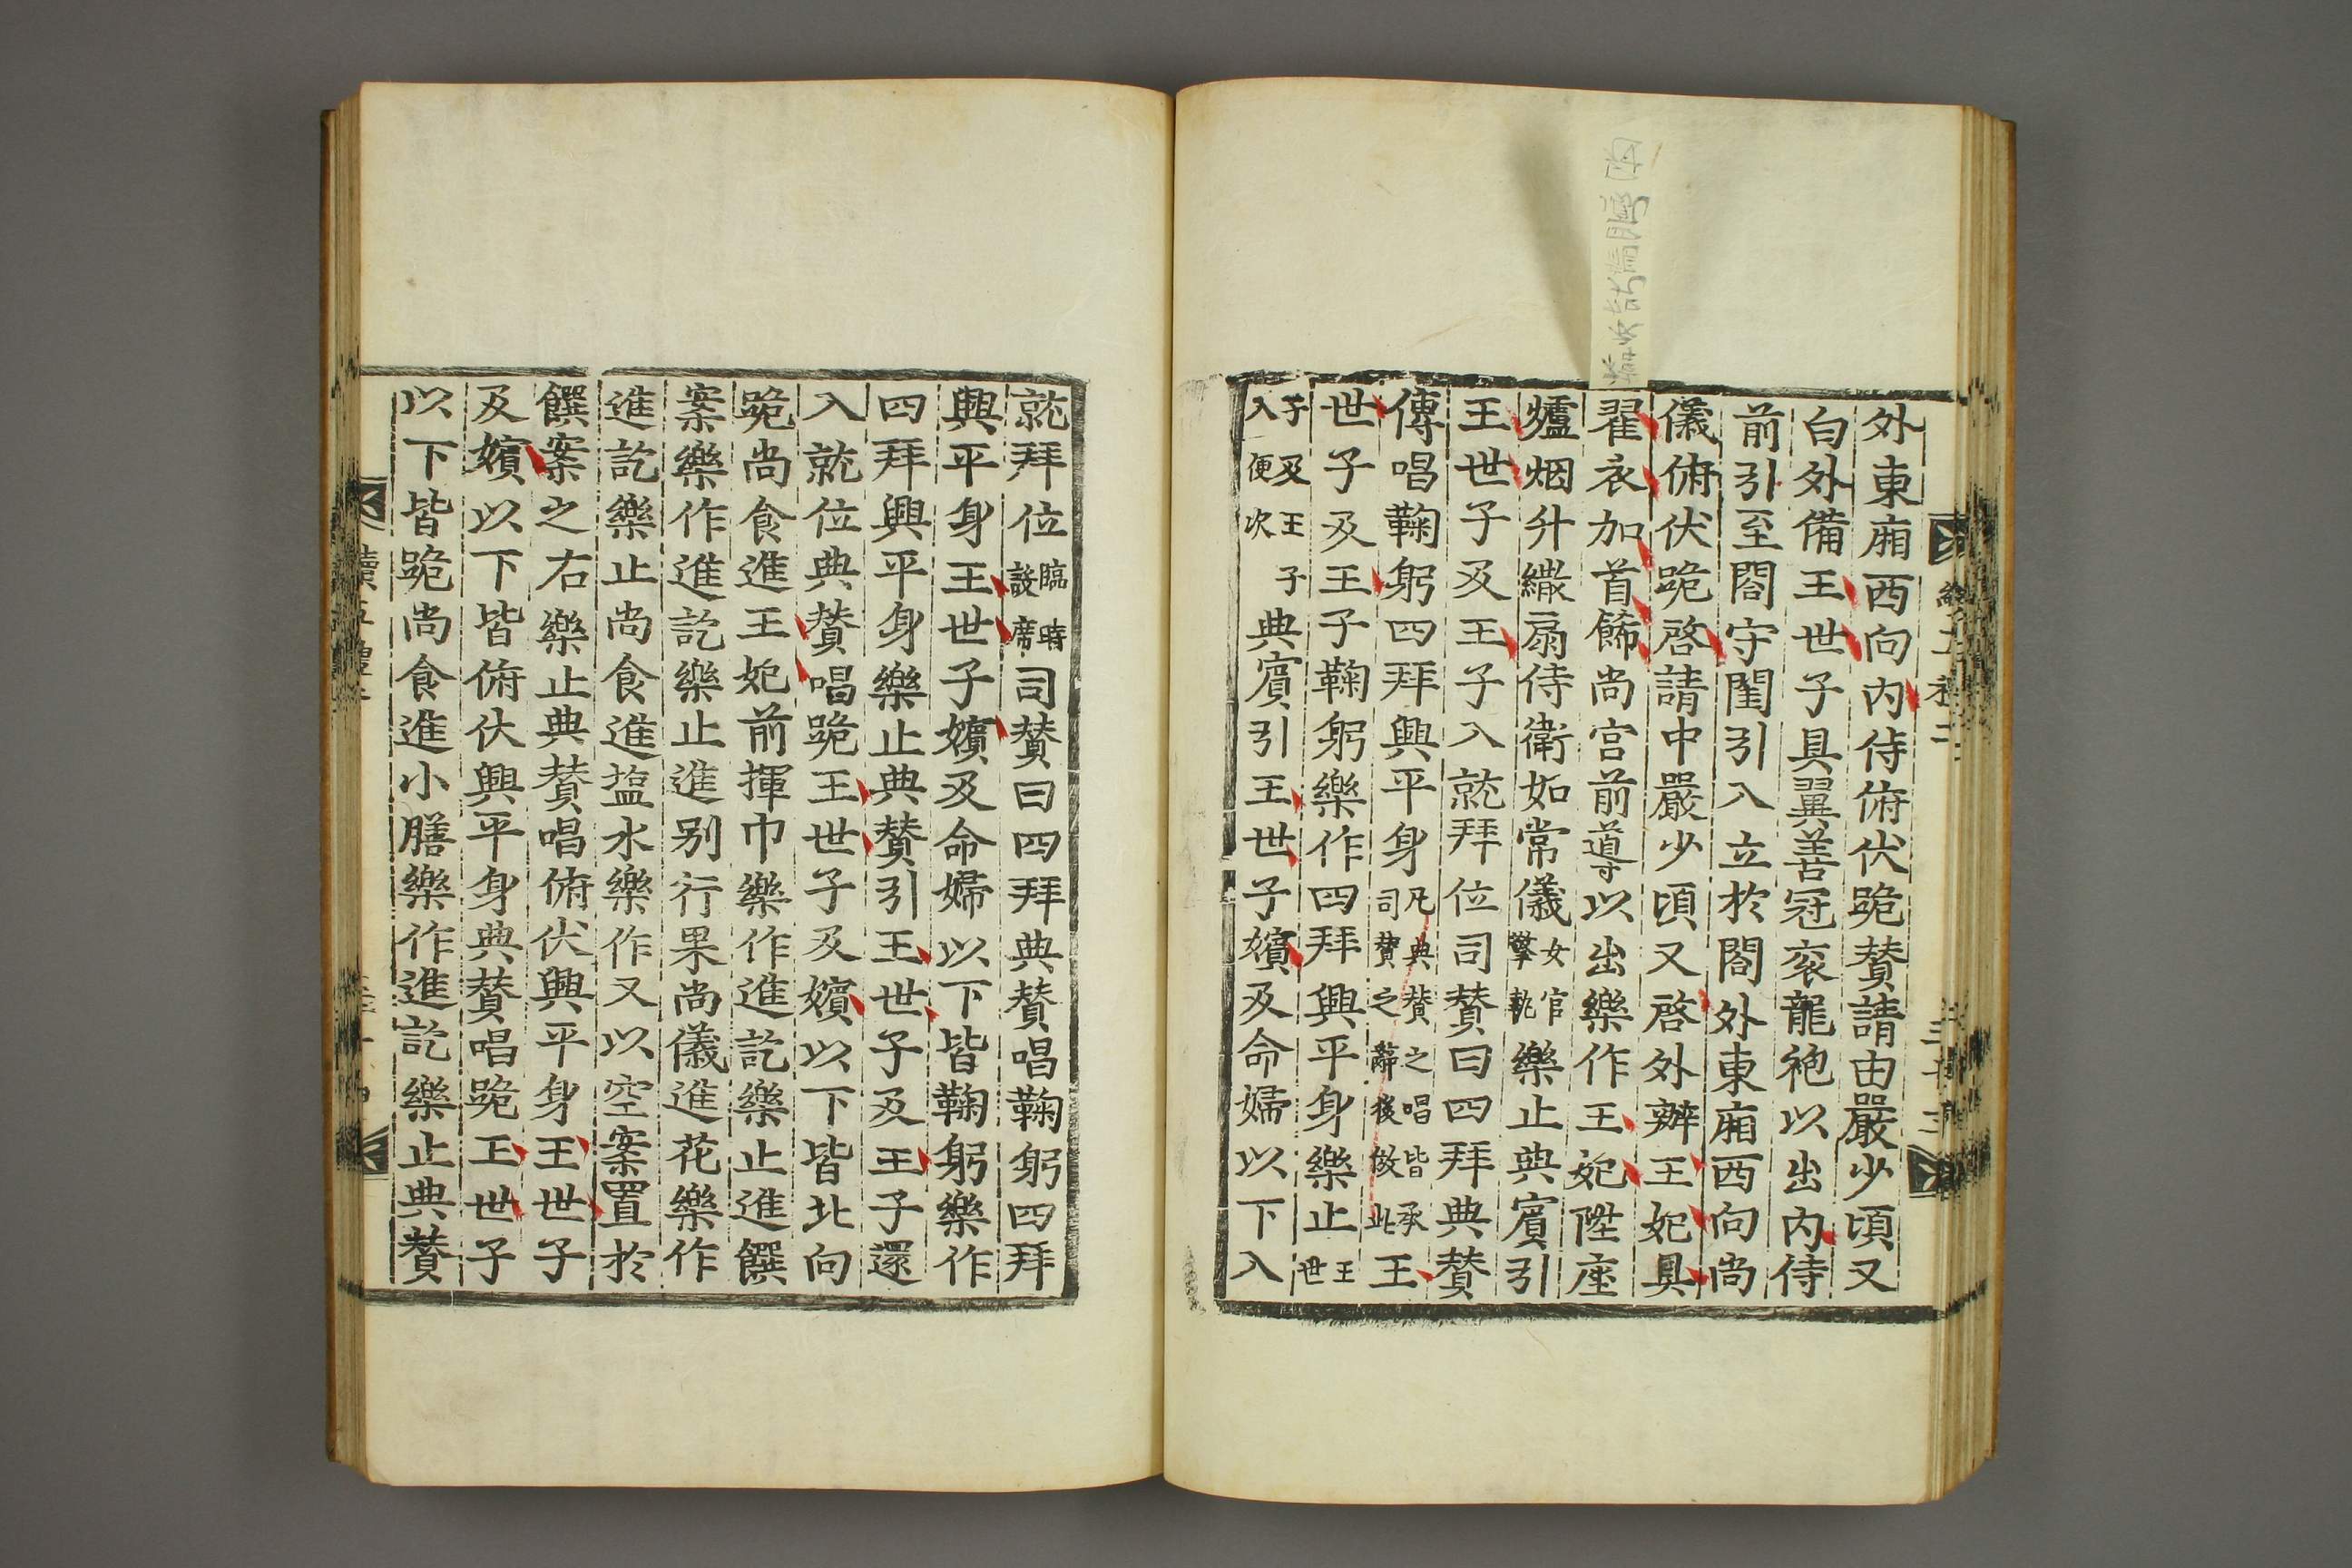 外東廂西向內侍俯伏跪贊請由嚴少頃又
白外備王世子具翼善冠衮龍袍以出內侍
前引至閤守閨引入立於閤外東廂西向尚
儀俯伏跪啓請中嚴少頃又啓外辦王妃具
翟衣加首飾尚宮前導以出樂作王妃陞座
爐烟升繖扇侍衛如常儀女官擎執樂止典賓引
王世子及王子入就拜位司贊曰四拜典贊
傳唱鞠躬四拜興平身凡典贊之唱皆承司贊之辭後倣此王
世子及王子鞠躬樂作四拜興平身樂止王世
子及王子入便次典賓引王世子嬪及命婦以下入
就拜位臨時設席司贊曰四拜典贊唱鞠躬四拜
興平身王世子嬪及命婦以下皆鞠躬樂作
四拜興平身樂止典贊引王世子及王子還
入就位典贊唱跪王世子及嬪以下皆北向
跪尚食進王妃前揮巾樂作進訖樂止進饌
案樂作進訖樂止進别行果尚儀進花樂作
進訖樂止尚食進塩水樂作又以空案置於
饌案之右樂止典贊唱俯伏興平身王世子
及嬪以下皆俯伏興平身典贊唱跪王世子
以下皆跪尚食進小膳樂作進訖樂止典贊